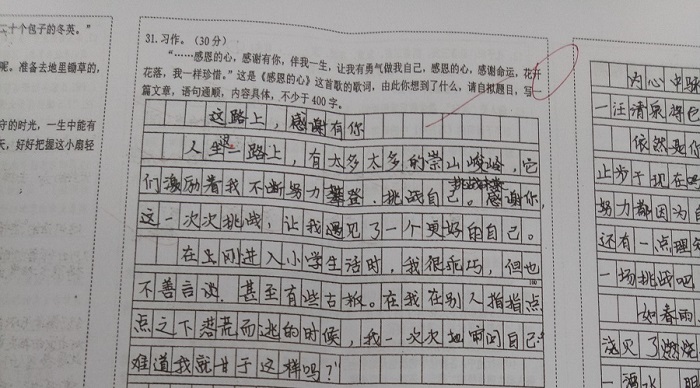 二十个包子的冬英。”
呢，准备去地里锄草的，
守的时光，一生中能有
天，好好把握这小扇轻
31. 习作。（30 分）
“……感恩的心，感谢有你，伴我一生，让我有勇气做我自己，感恩的心，感谢命运，花开
花落，我一样珍惜。”这是《感恩的心》这首歌的歌词，由此你想到了什么，请自拟题目，写一
篇文章，语句通顺，内容具体，不少于 400 字。
这路上，感谢有你
人生这一路上，有太多太多的崇山峻岭，它
们激励着我不断努力攀登，挑战自己。感谢你，
这一次次挑战，让我遇见了一个更好的自己。
在上刚进入小学生活时，我很乖巧，但也
不善言谈，甚至有些古板。在我在别人指指点
点之下落荒而逃的时候，我一次次地审问自己：“
难道我就甘于这样吗？”
内心中
一汪清泉
依然是你
止步于现在
努力都因为
还有一点理
一场挑战吧
如春雨
浇灭了燃烧